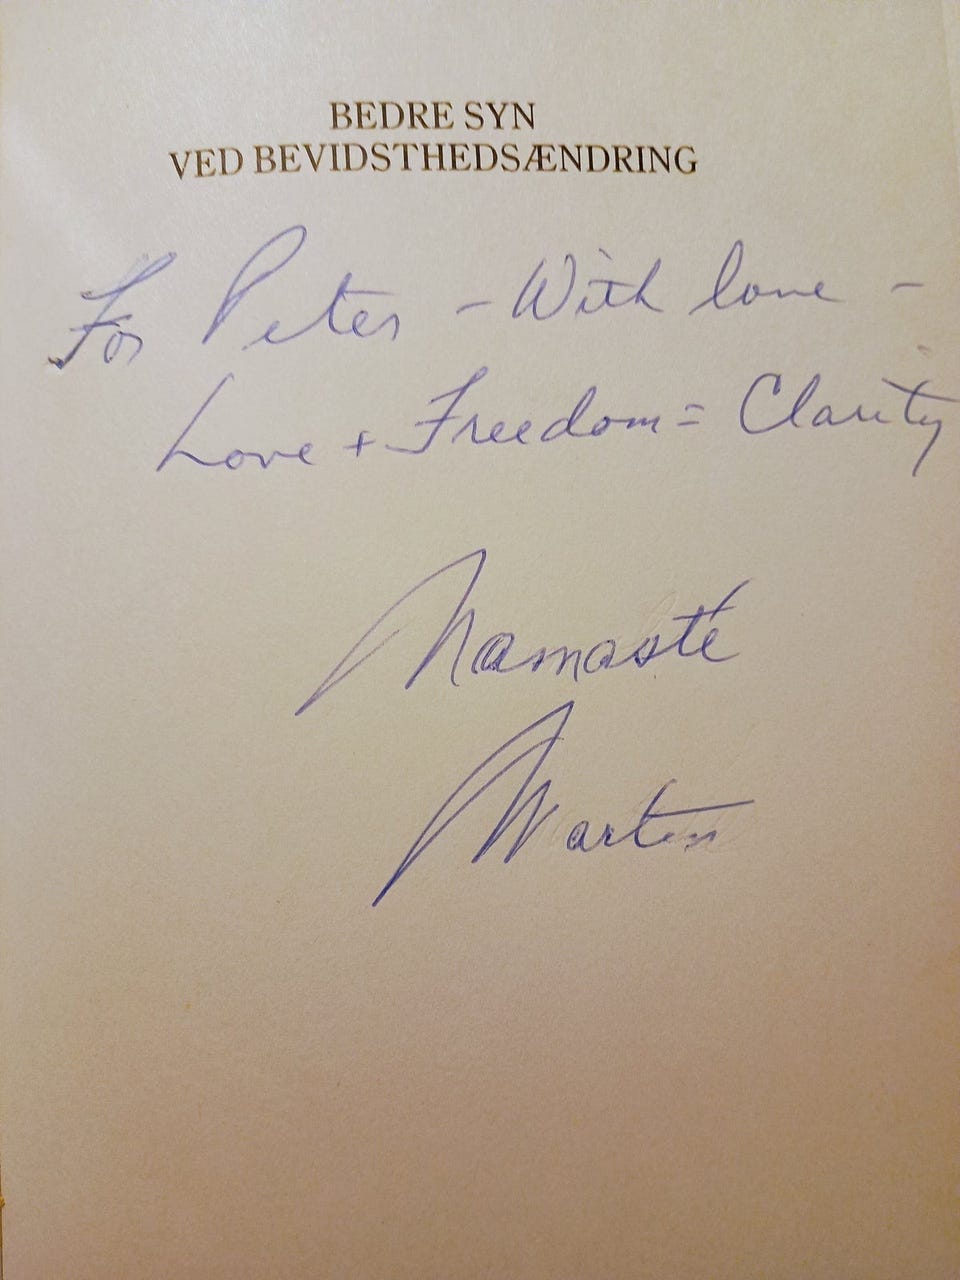 BEDRE SYN
VED BEVIDSTHEDSÆNDRING
For Peter – With love –
Love + Freedom = Clarity
Namasté
Martin